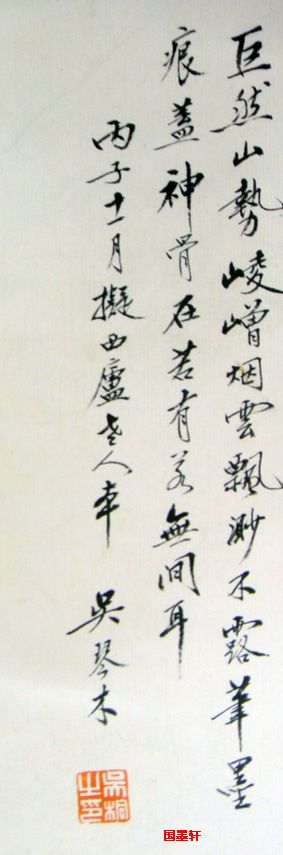 巨然山勢崚嶒烟雲飄渺不露筆墨
痕蓋神骨在若有若無間耳
丙子十一月擬西廬老人本
吳琴木
吳桐之印
国墨轩